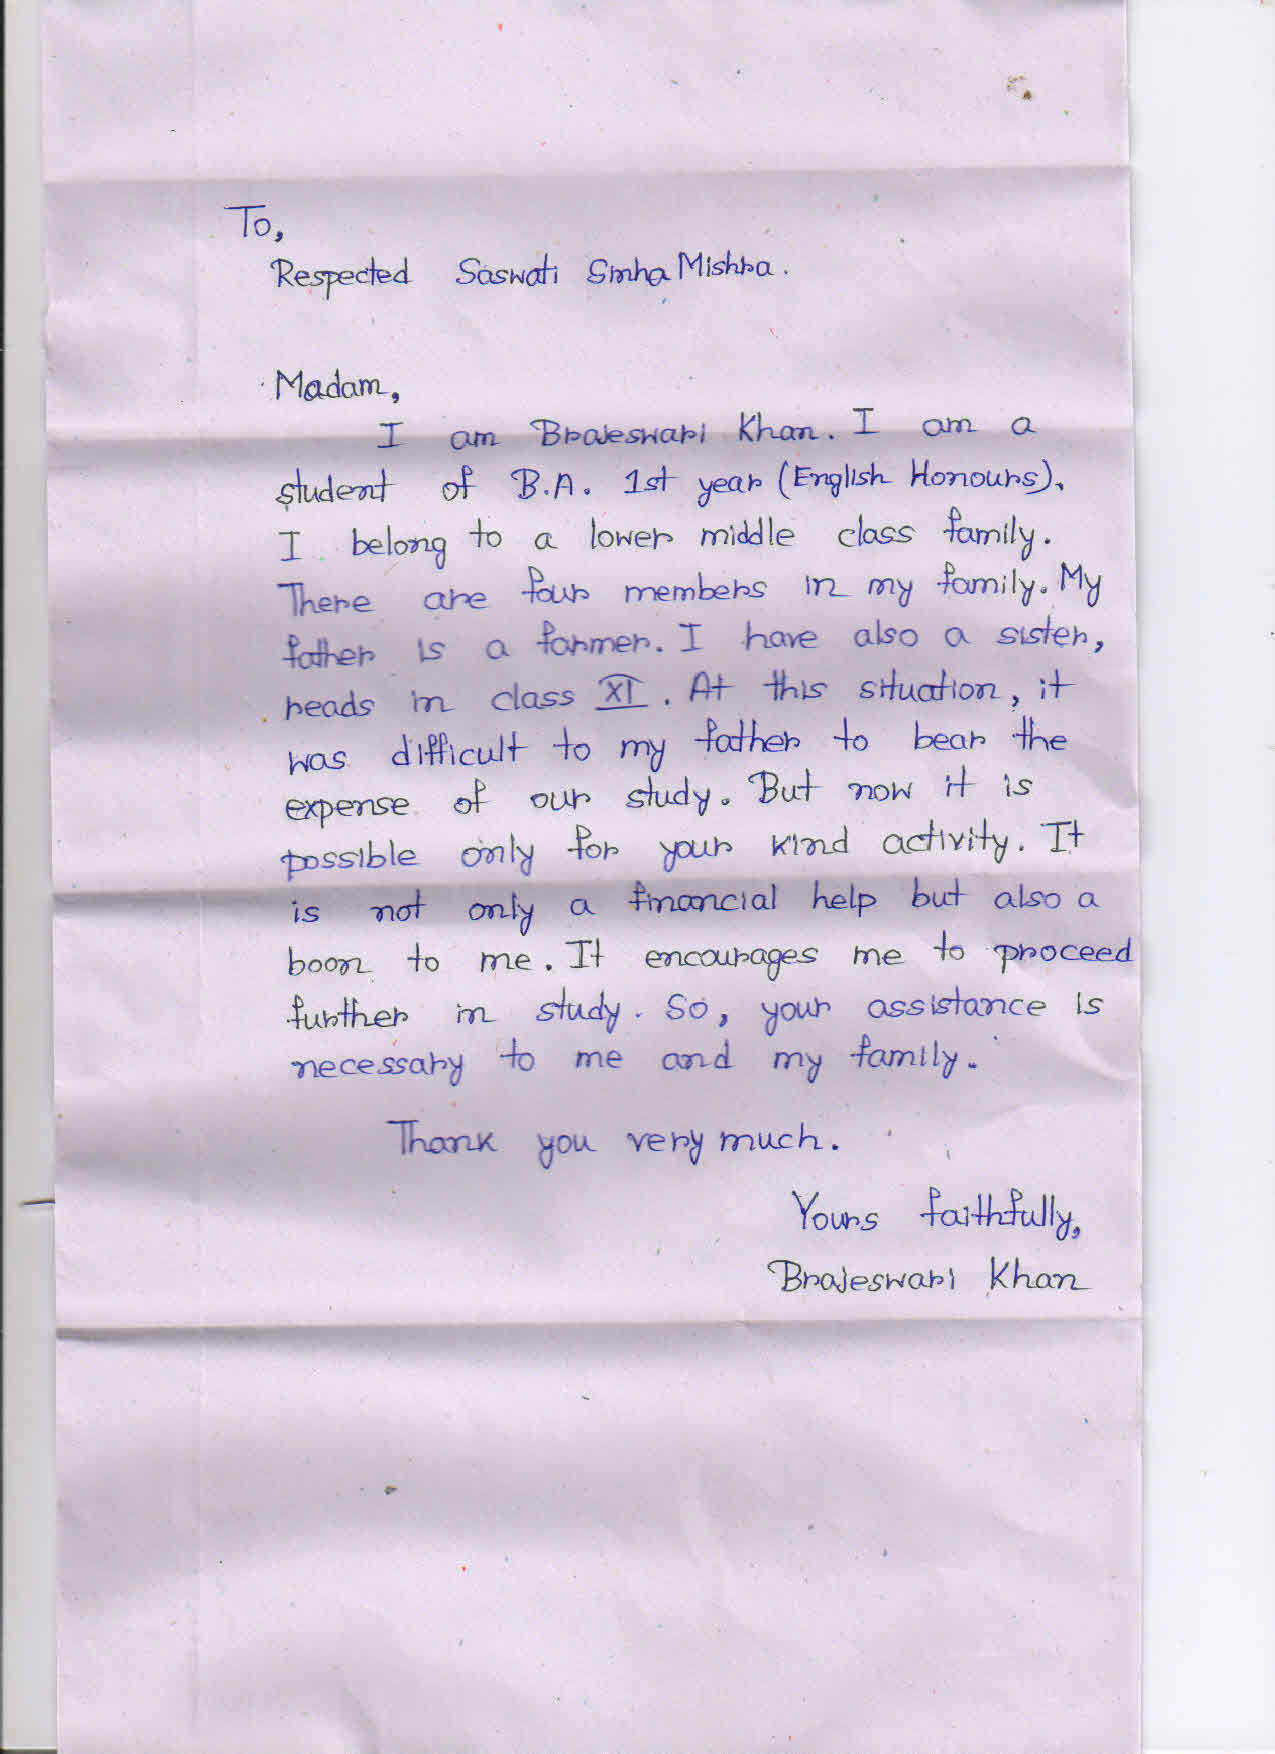 To,
Respected Saswati Sinha Mishra.
Madam,
I am Brajeswari Khan. I am a
student of B.A. 1st year (English Honours).
I belong to a lower middle class family.
There are four members in my family. My
father is a farmer. I have also a sister,
reads in class XI. At this situation, it
was difficult to my father to bear the
expense of our study. But now it is
possible only for your kind activity. It
is not only a financial help but also a
boon to me. It encourages me to proceed
further in study. So, your assistance is
necessary to me and my family.
Thank you very much.
Yours faithfully,
Brajeswari Khan